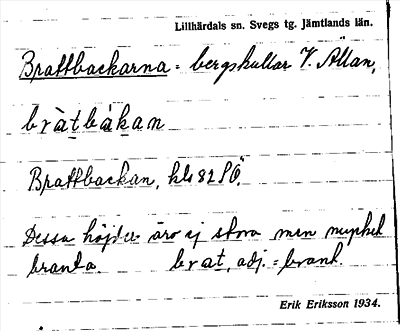 Lillhärdals sn. Svegs tg. Jämtlands län.
Brattbackarna = bergskullar V. Ällan,
bràtbàkan
Brattbackan, kls 82 PÖ.
Dessa höjder äro ej stora men mycket
branta. brat, adj. = brant.
Erik Eriksson 1934.